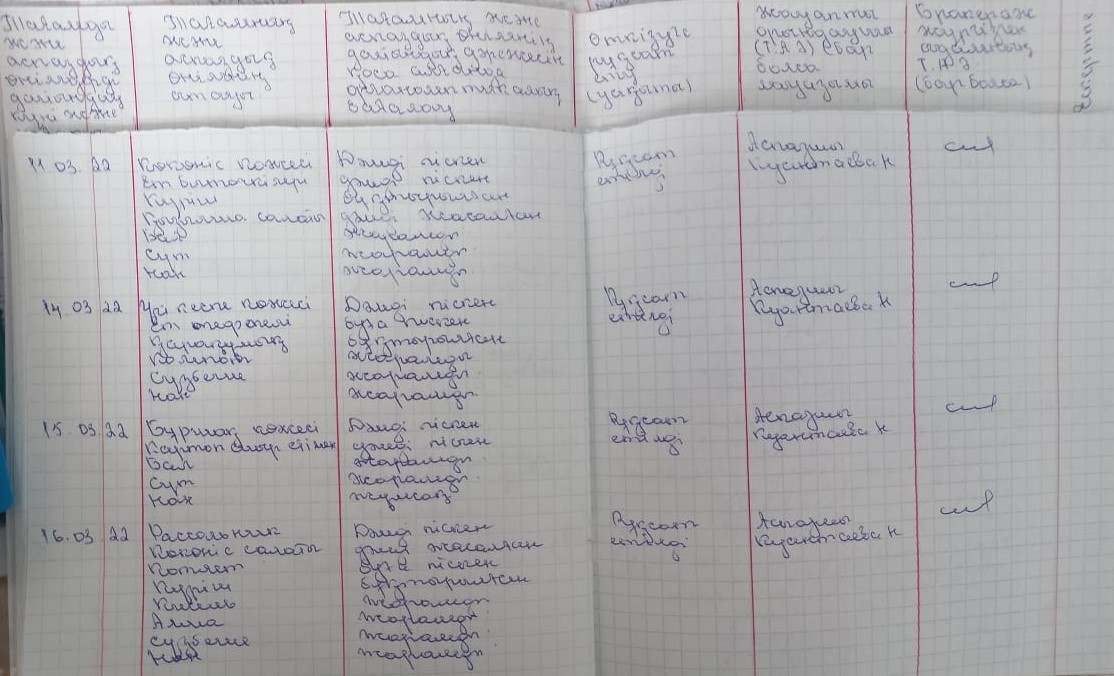 Тағамды
және
аспаздық
өнімдерді
дайындаудың
күні және
Тағамның
және
аспаздық
өнімнің
атауы
Тағамның және
аспаздық өнімнің
дайындық дәрежесін
қоса алғанда
органолептикалық
бағалау
Өткізуге
рұқсат
ету
(уақыты)
Жауапты
орындаушы
(Т.А.Ә) (бар
болса
лауазымы
Бракераж
жүргізген
адамның
Т.А.Ә.
(бар болса)
Ескертпе
11.03.22
Көкөніс көжесі
Ет биточкілері
Күріш
Қызылша салаты
Бал
Сүт
Нан
Дәмді піскен
дәмді піскен
бұқтырылған
дәмді жасалған
жарамды
жарамды.
жарамды.
Рұқсат
етілді
Аспазшы
Куантаева Н
14.03.22
Үй кеспе көжесі
Ет тефтелі
Қарақұмық
Компоты
Сүзбеше
Нан
Дәмді піскен
буға піскен
бұқтырылған
жарамды
жарамды.
жарамды.
Рұқсат
етілді
Аспазшы
Куантаева Н
15.03.22
Бұршақ көжесі
Картоп сиыр етімен
Бал
Сүт
Нан
Дәмді піскен
дәмді піскен
жарамды.
жарамды.
жұмсақ
Рұқсат
етілді
Аспазшы
Куантаева Н
16.03.22
Рассольник
Көкөніс салаты
Котлет
Күріш
Кисель
Алма
Сүзбеше
Нан
Дәмді піскен
дәмді жасалған
буға піскен
бұқтырылған
жарамды
жарамды.
жарамды.
жарамды
Рұқсат
етілді
Аспазшы
Куантаева Н